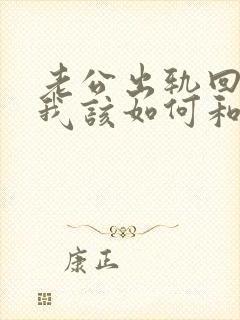 老公出轨回
我该如何和
康正